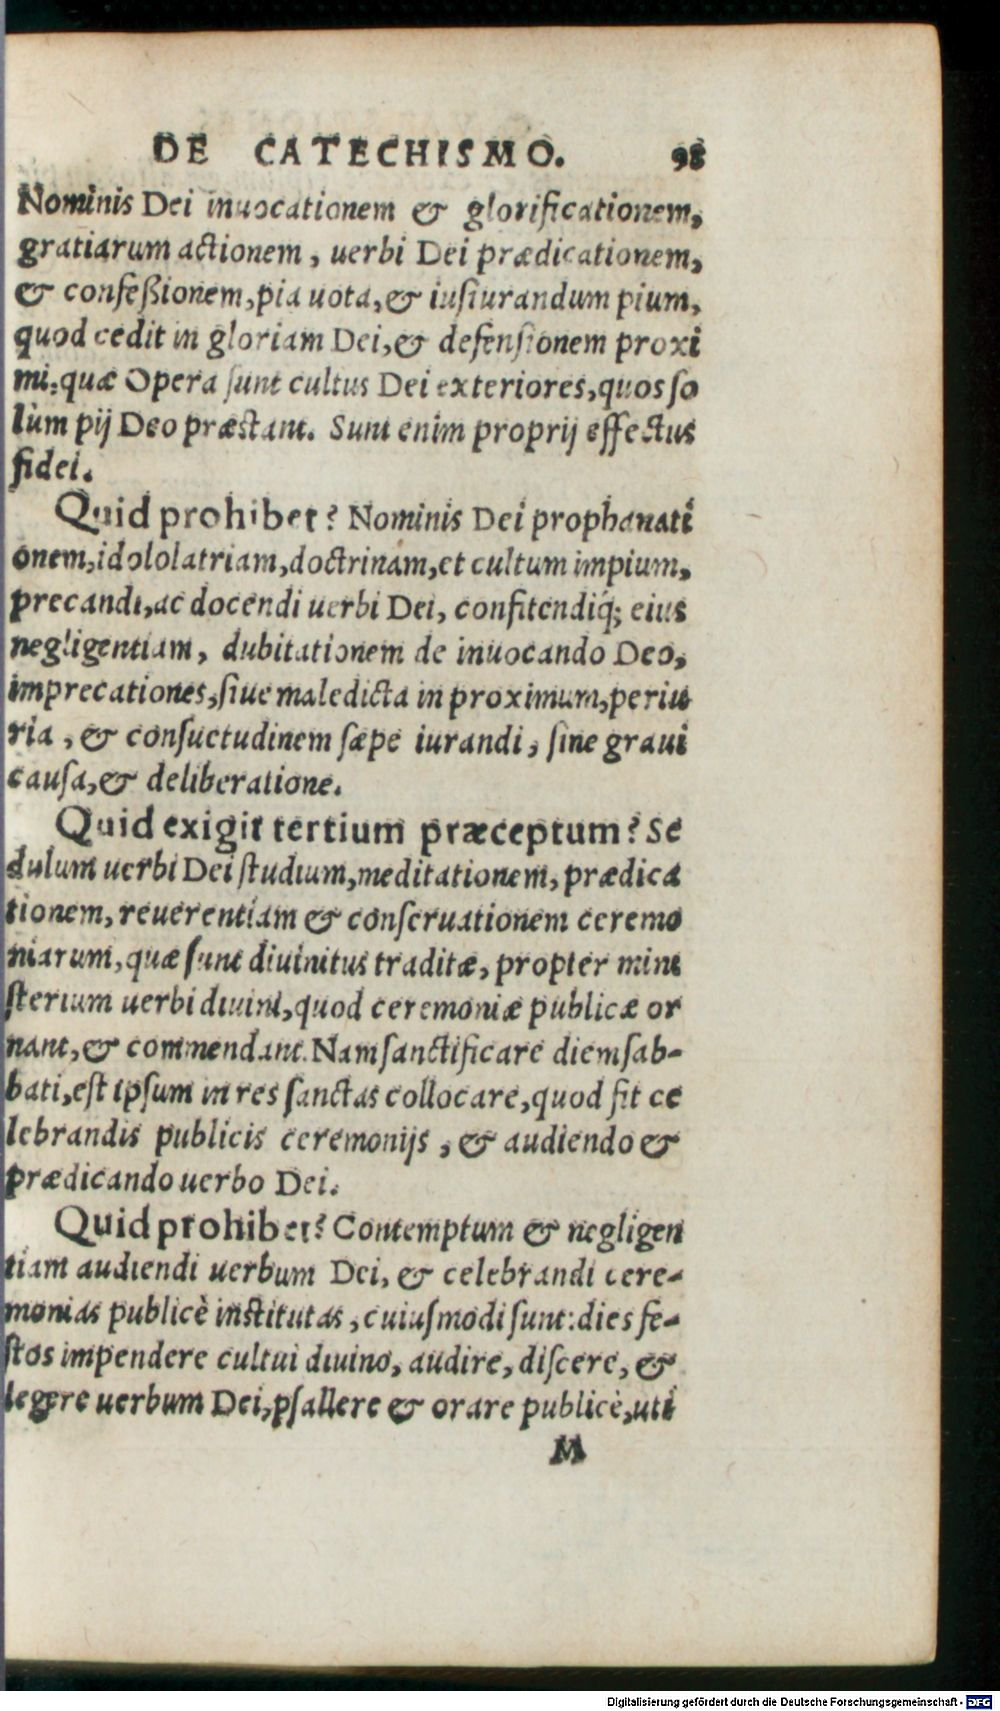 DE CATECHISMO. 98
Nominis Dei inuocationem & glorificationem,
gratiarum actionem, uerbi Dei prædicationem,
& confeßionem, pia uota, & iusiurandum pium,
quod cedit in gloriam Dei, & defensionem proxi
mi: quæ Opera sunt cultus Dei exteriores, quos so
lùm pij Deo præstant. Sunt enim proprij effectus
fidei.
Quid prohibet? Nominis Dei prophanati
onem, idololatriam, doctrinam, et cultum impium,
precandi, ac docendi uerbi Dei, confitendiq́; eius
negligentiam, dubitationem de inuocando Deo,
imprecationes, siue maledicta in proximum, periu
ria, & consuetudinem sæpe iurandi, sine graui
causa, & deliberatione.
Quid exigit tertium præceptum? Se
dulum uerbi Dei studium, meditationem, prædica
tionem, reuerentiam & conseruationem ceremo
niarum, quæ sunt diuinitus traditæ, propter mini
sterium uerbi diuini, quod ceremoniæ publicæ or
nant, & commendant. Nam sanctificare diem sab-
bati, est ipsum in res sanctas collocare, quod fit ce
lebrandis publicis ceremonijs, & audiendo &
prædicando uerbo Dei.
Quid prohibet? Contemptum & negligen
tiam audiendi uerbum Dei, & celebrandi cere-
monias publicè institutas, cuiusmodi sunt: dies fe-
stos impendere cultui diuino, audire, discere, &
legere uerbum Dei, psallere & orare publicè, uti
M
Digitalisierung gefördert durch die Deutsche Forschungsgemeinschaft - DFG